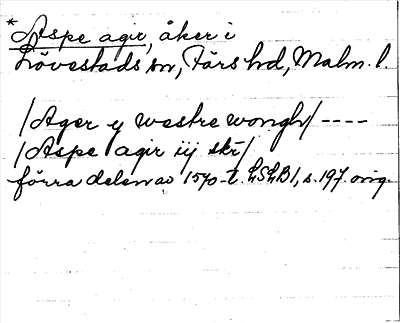 * Aspe agir, åker i
Lövestads sn, Färs hd, Malm. l.
/Ager y westre wongh/ ----
/Aspe agir iij skr/
förra delen av 1570-t. LSLB1, s. 197 orig.